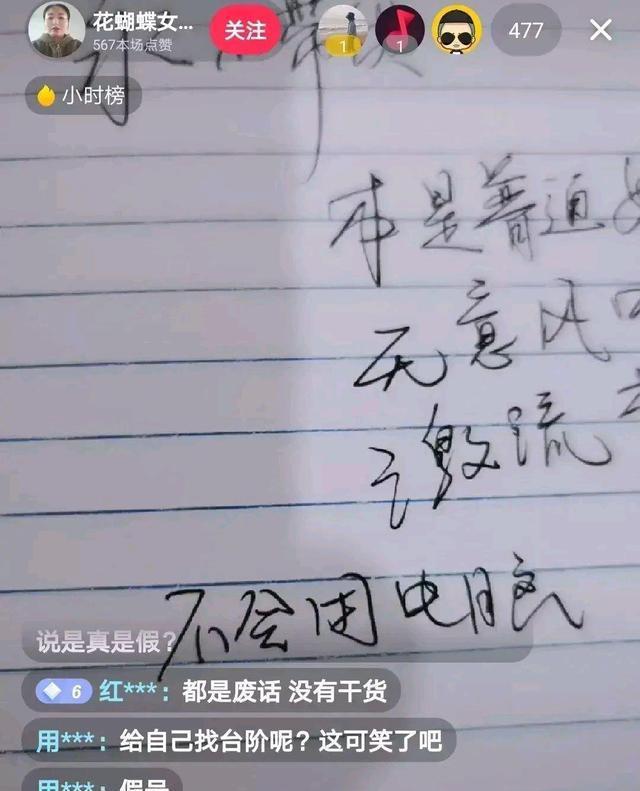 花蝴蝶女...
567本场点赞
关注
1
1
477
小时榜
本是普通
无意风
激流
不会用电脑
说是真是假?
6 红***: 都是废话 没有干货
用***: 给自己找台阶呢? 这可笑了吧
用***: 假号